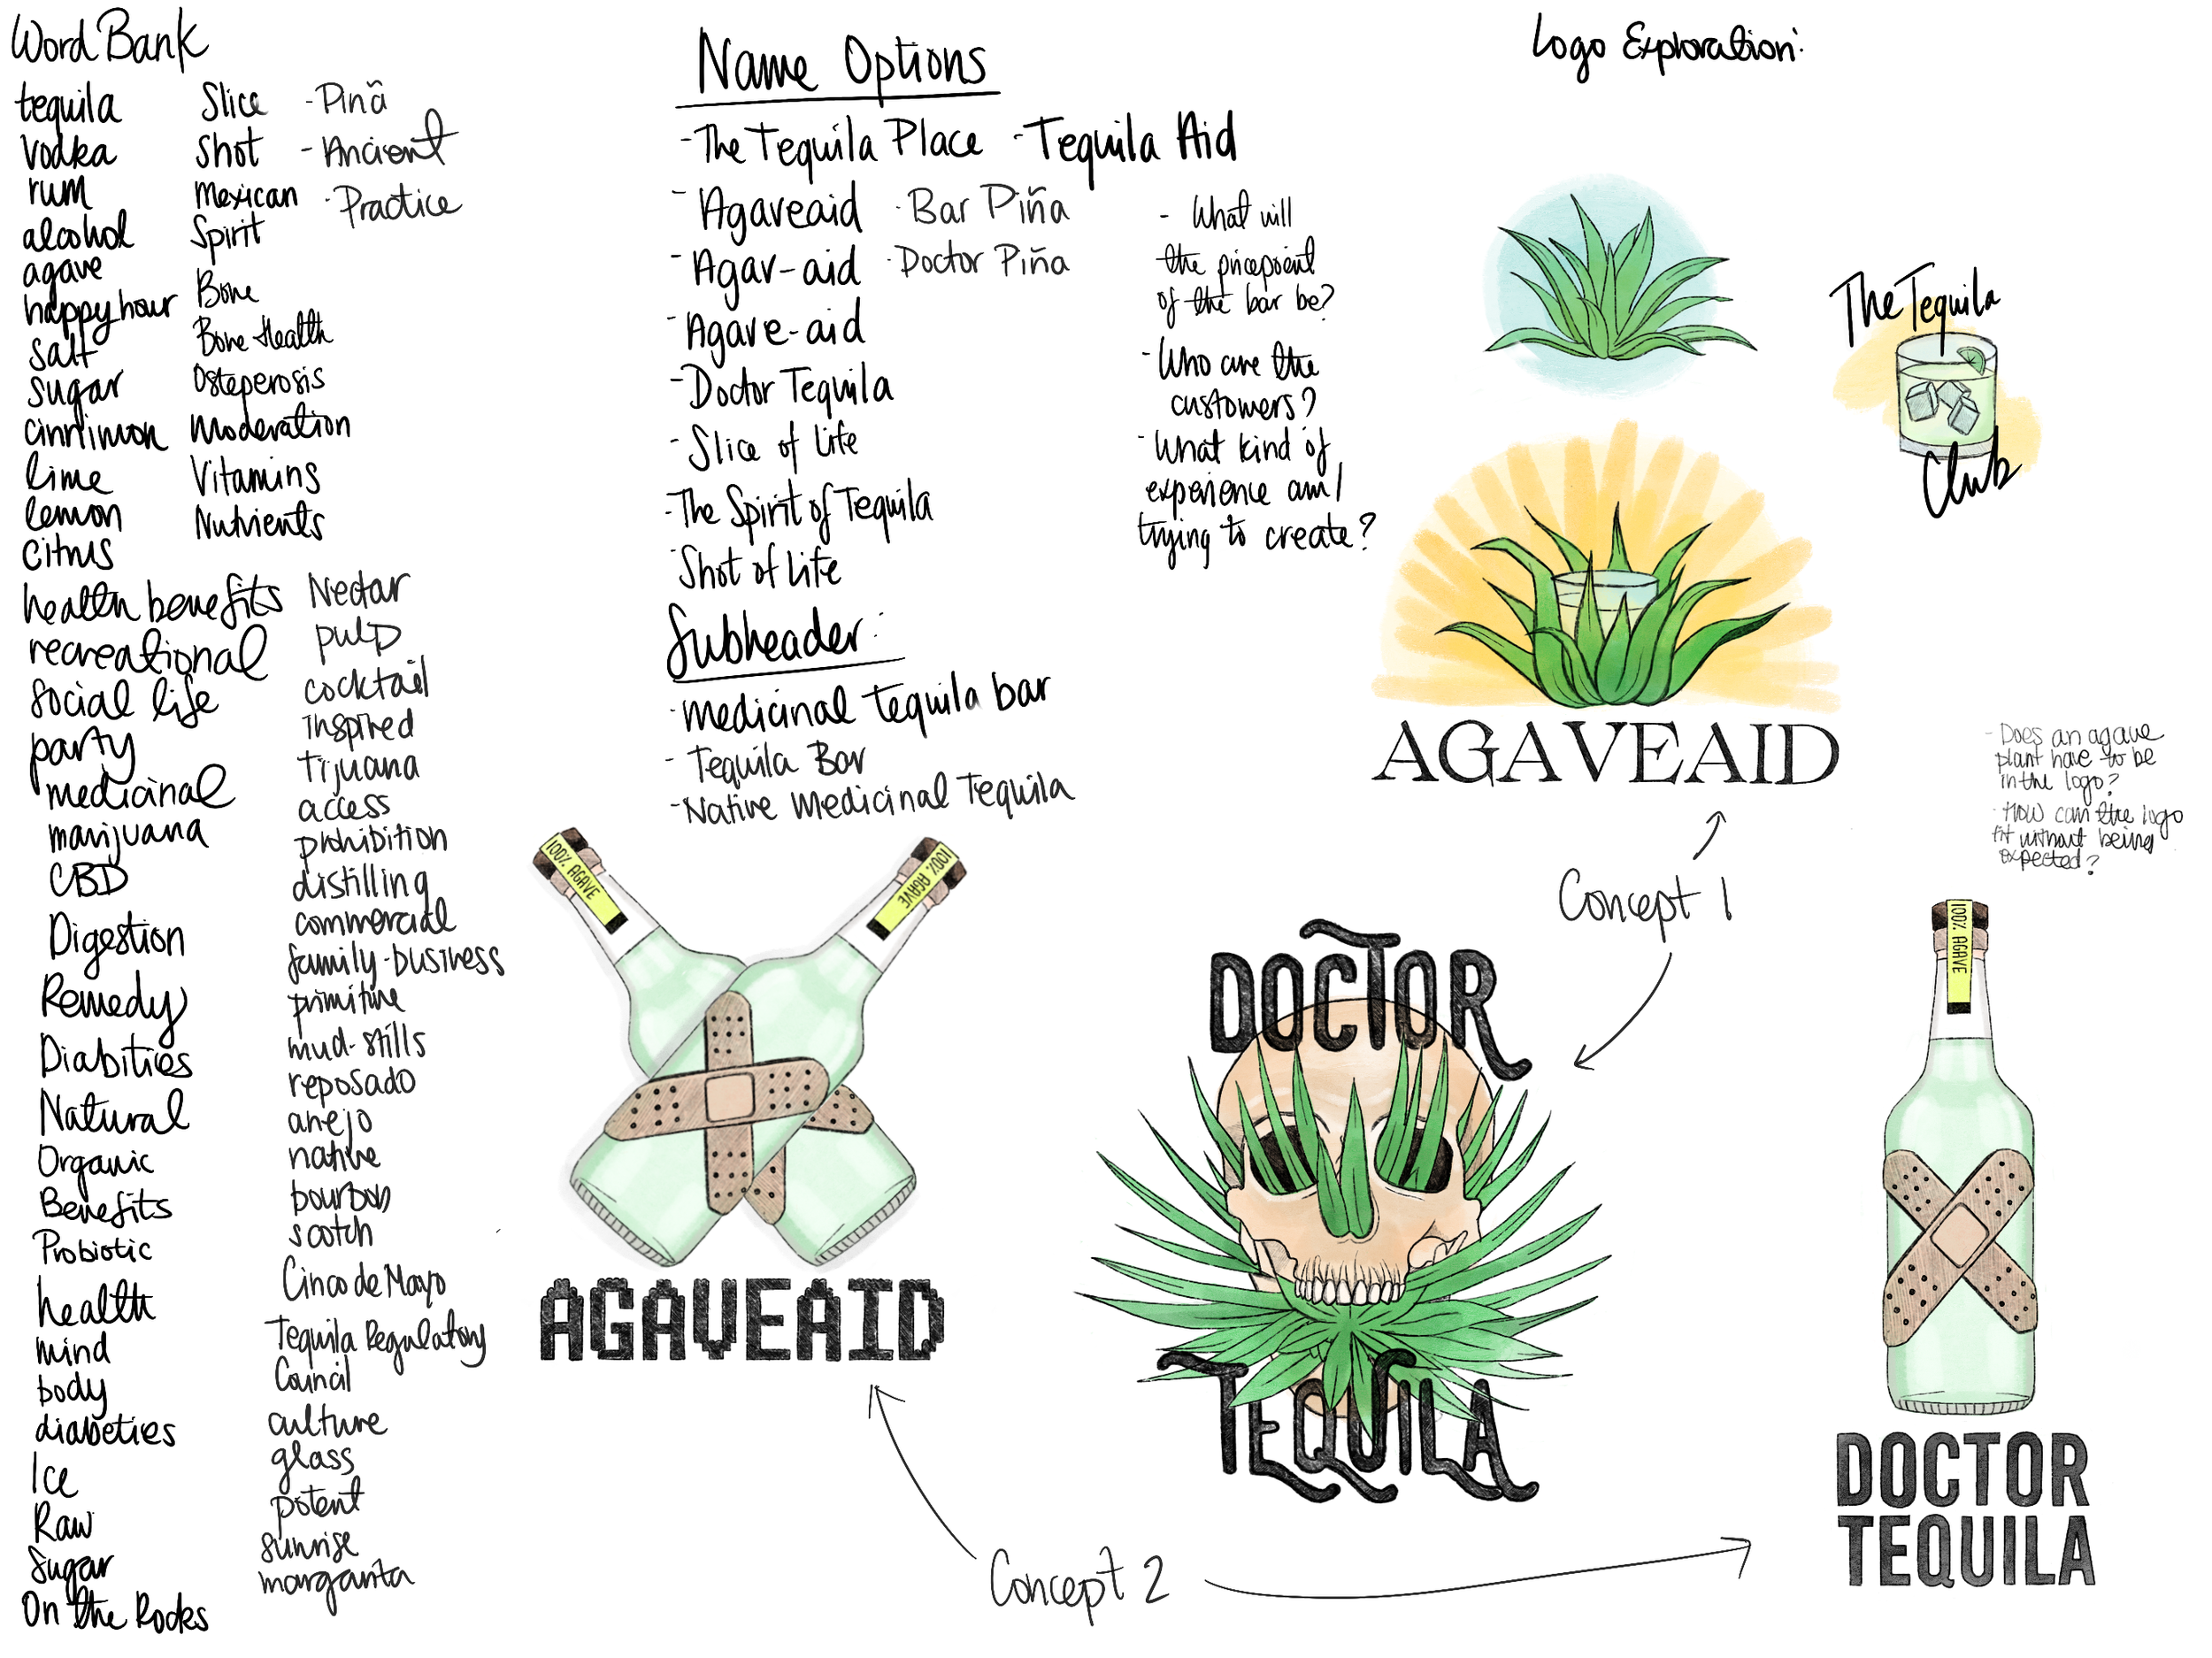 Word Bank
tequila
vodka
rum
alcohol
agave
happy hour
salt
sugar
cinnimon
lime
lemon
citrus
health benefits
recreational
social life
party
medicinal
marijuana
CBD
Digestion
Remedy
Diabities
Natural
Organic
Benefits
Probiotic
health
mind
body
diabeties
Ice
Raw
Sugar
On the Rocks
Slice
Shot
Mexican
Spirit
Bone
Bone Health
Osteperosis
Moderation
Vitamins
Nutrients
- Pinã
- Ancient
- Practice
Nectar
pulp
cocktail
inspired
tijuana
access
prohibition
distilling
commercial
family-business
primitive
mud-stills
reposado
anejo
native
bourbon
scotch
Cinco de Mayo
Tequila Regulatory
Council
culture
glass
potent
sunrise
margarita
Name Options
- The Tequila Place - Tequila Aid
- Agaveaid - Bar Piña
- Agav-aid - Doctor Piña
- Agave-aid
- Doctor Tequila
- Slice of life
- The Spirit of Tequila
- Shot of life
Subheader:
- medicinal tequila bar
- Tequila Bar
- Native Medicinal Tequila
- What will
the pricepoint
of the bar be?
- Who are the
customers?
- What kind of
experience am I
trying to create?
Logo Exploration:
The Tequila
Club
AGAVEAID
- Does an agave
plant have to be
in the logo?
- How can the logo
fit without being
expected?
Concept 1
100% AGAVE
100% AGAVE
AGAVEAID
DOCTOR
TEQUILA
100% AGAVE
DOCTOR
TEQUILA
Concept 2